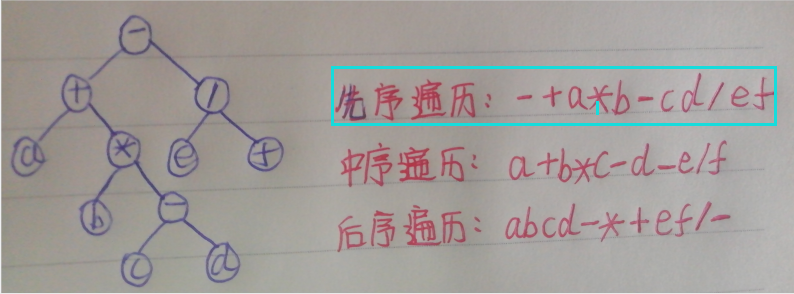 -
+ /
a * e f
b -
c d
先序遍历: -+a*b-cd/ef
中序遍历: a+b*c-d-e/f
后序遍历: abcd-*+ef/-